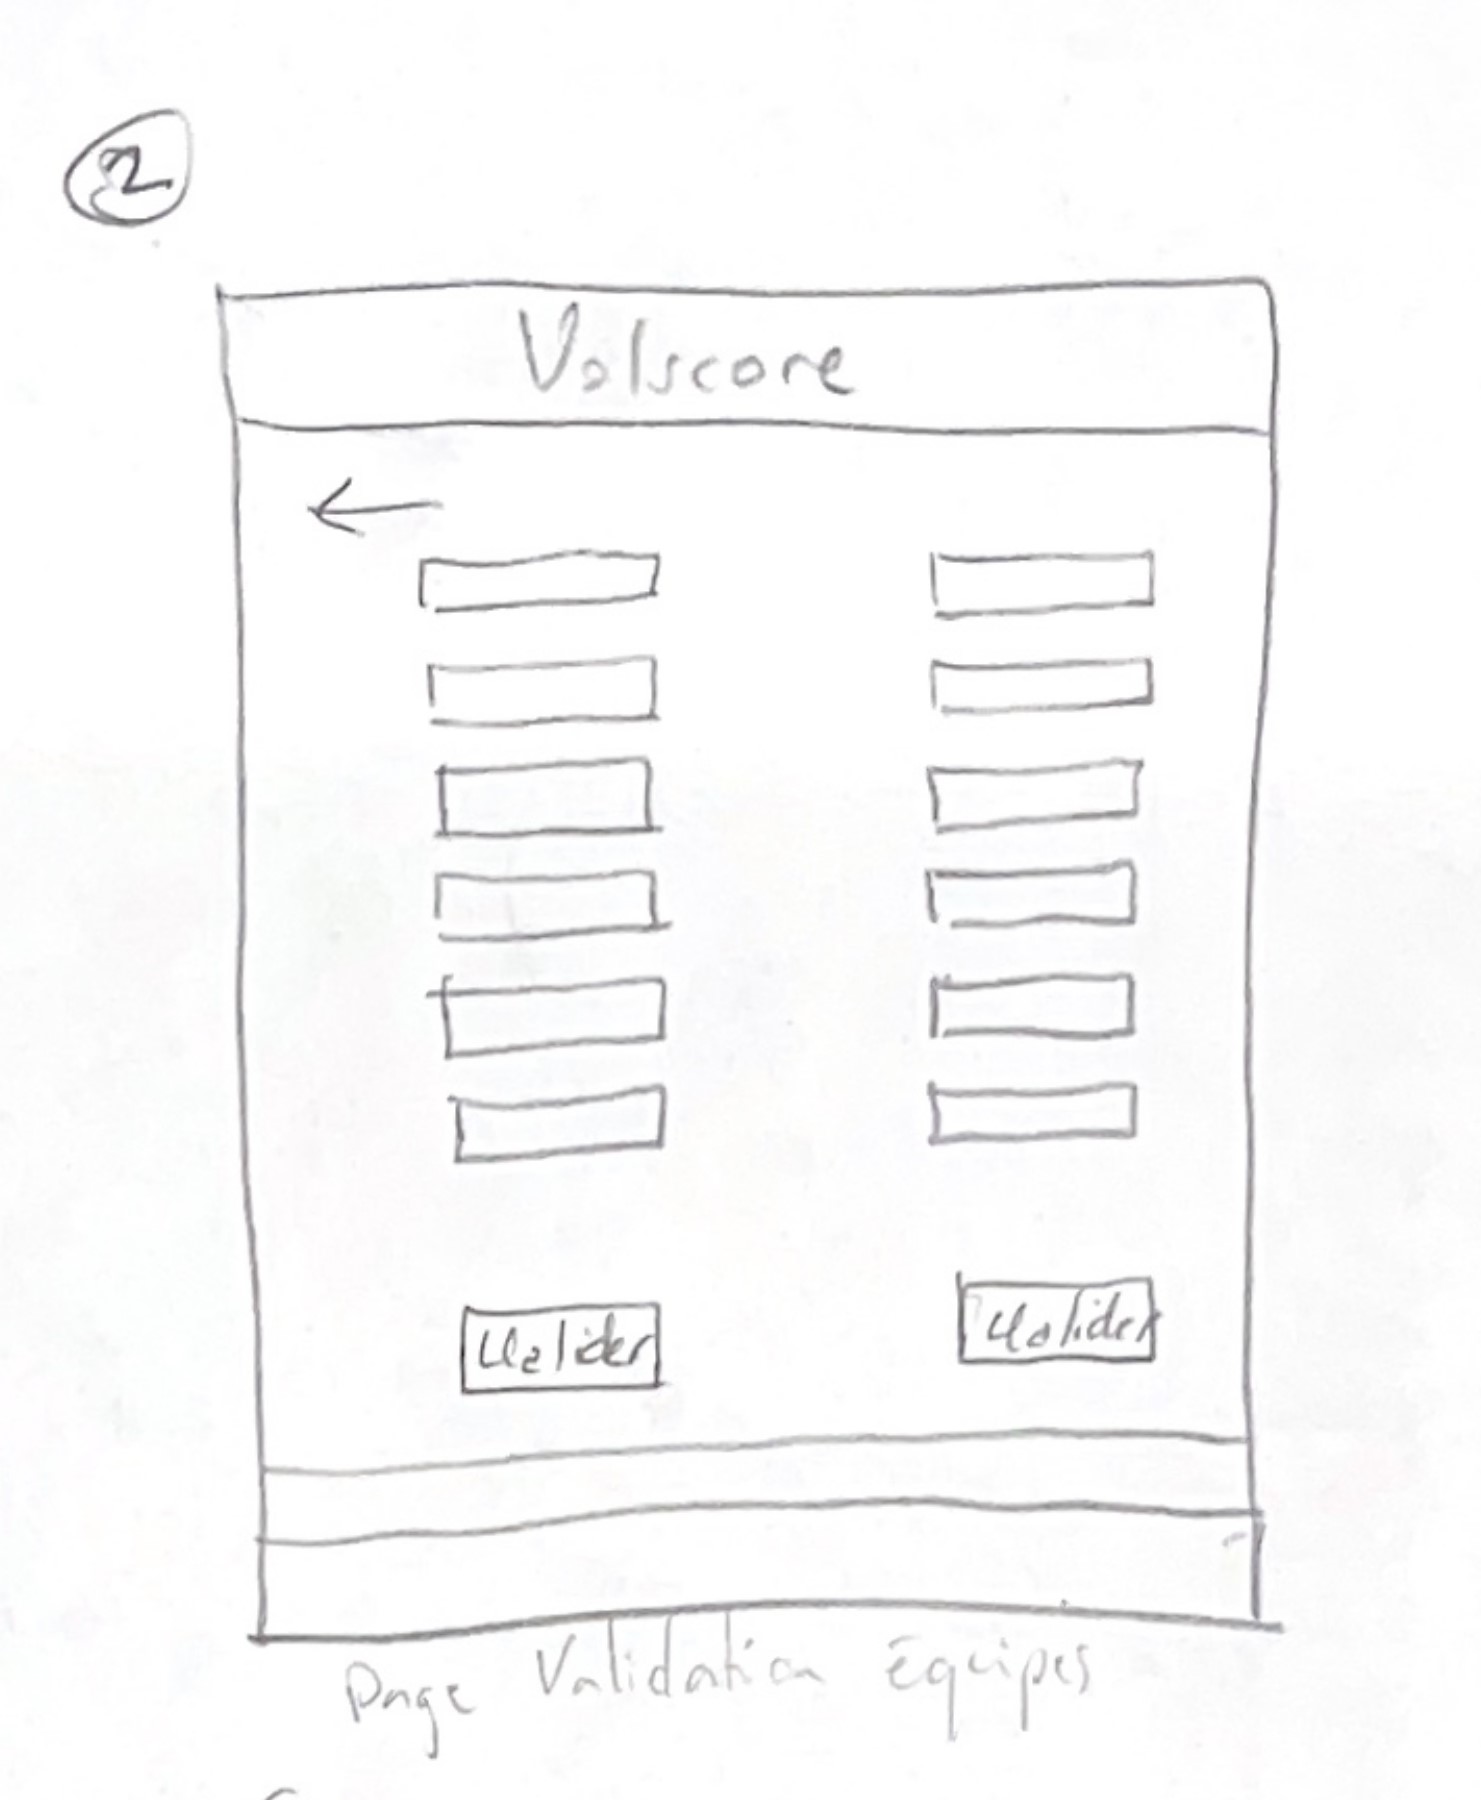 2
Volscore
←
Valider Valider
Page Validation équipes